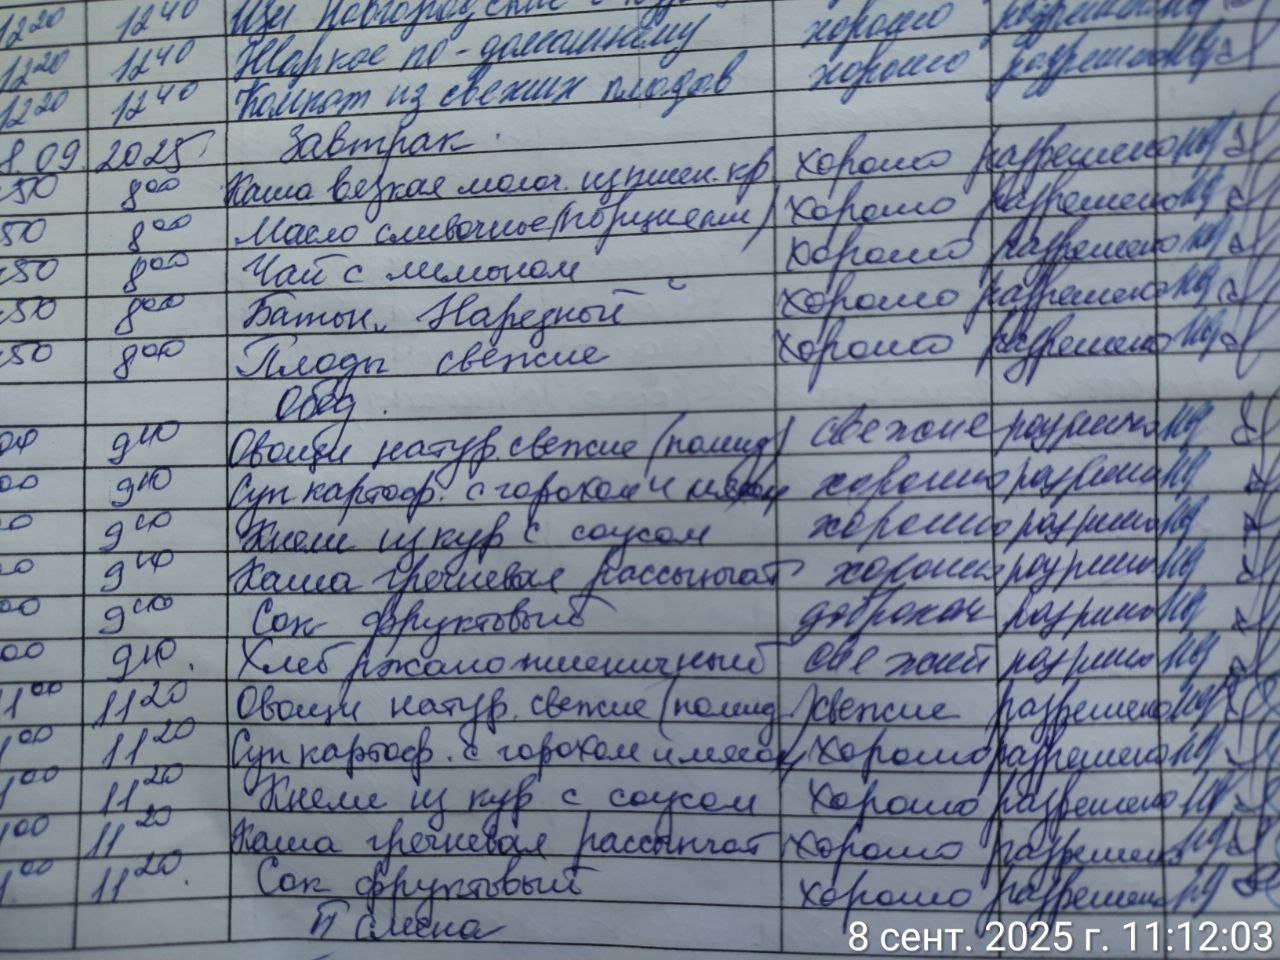 12 20 12 40 Щи Новгородские с хорошо разрешено
12 20 12 40 Жаркое по-домашнему хорошо разрешено
12 20 12 40 Компот из свежих плодов хорошо разрешено
8.09 2025г Завтрак.
50 8 00 Каша вязкая молоч. из пшен. кр. хорошо разрешено
50 8 00 Масло сливочное (порциями) хорошо разрешено
50 8 00 Чай с лимоном хорошо разрешено
50 8 00 Батон „Нарезной" хорошо разрешено
50 8 00 Плоды свежие хорошо разрешено
Обед.
00 9 40 Овощи натур. свежие (помид) свежие
00 9 40 Суп картоф. с горохом и мясом хорошо
9 40 Кнели из кур с соусом хорошо
9 40 Каша гречневая рассыпчат хорошо
00 9 40 Сок фруктовый доброкач
00 9 40. Хлеб ржанопшеничный свежий
1 00 11 20 Овощи натур. свежие (помид.) свежие разрешено
00 11 20 Суп картоф. с горохом и мясом хорошо разрешено
00 11 20 Кнели из кур с соусом хорошо разрешено
00 11 20 Каша гречневая рассыпчат хорошо разрешено
1 00 11 20. Сок фруктовый хорошо разрешено
II смена
8 сент. 2025 г. 11:12:03